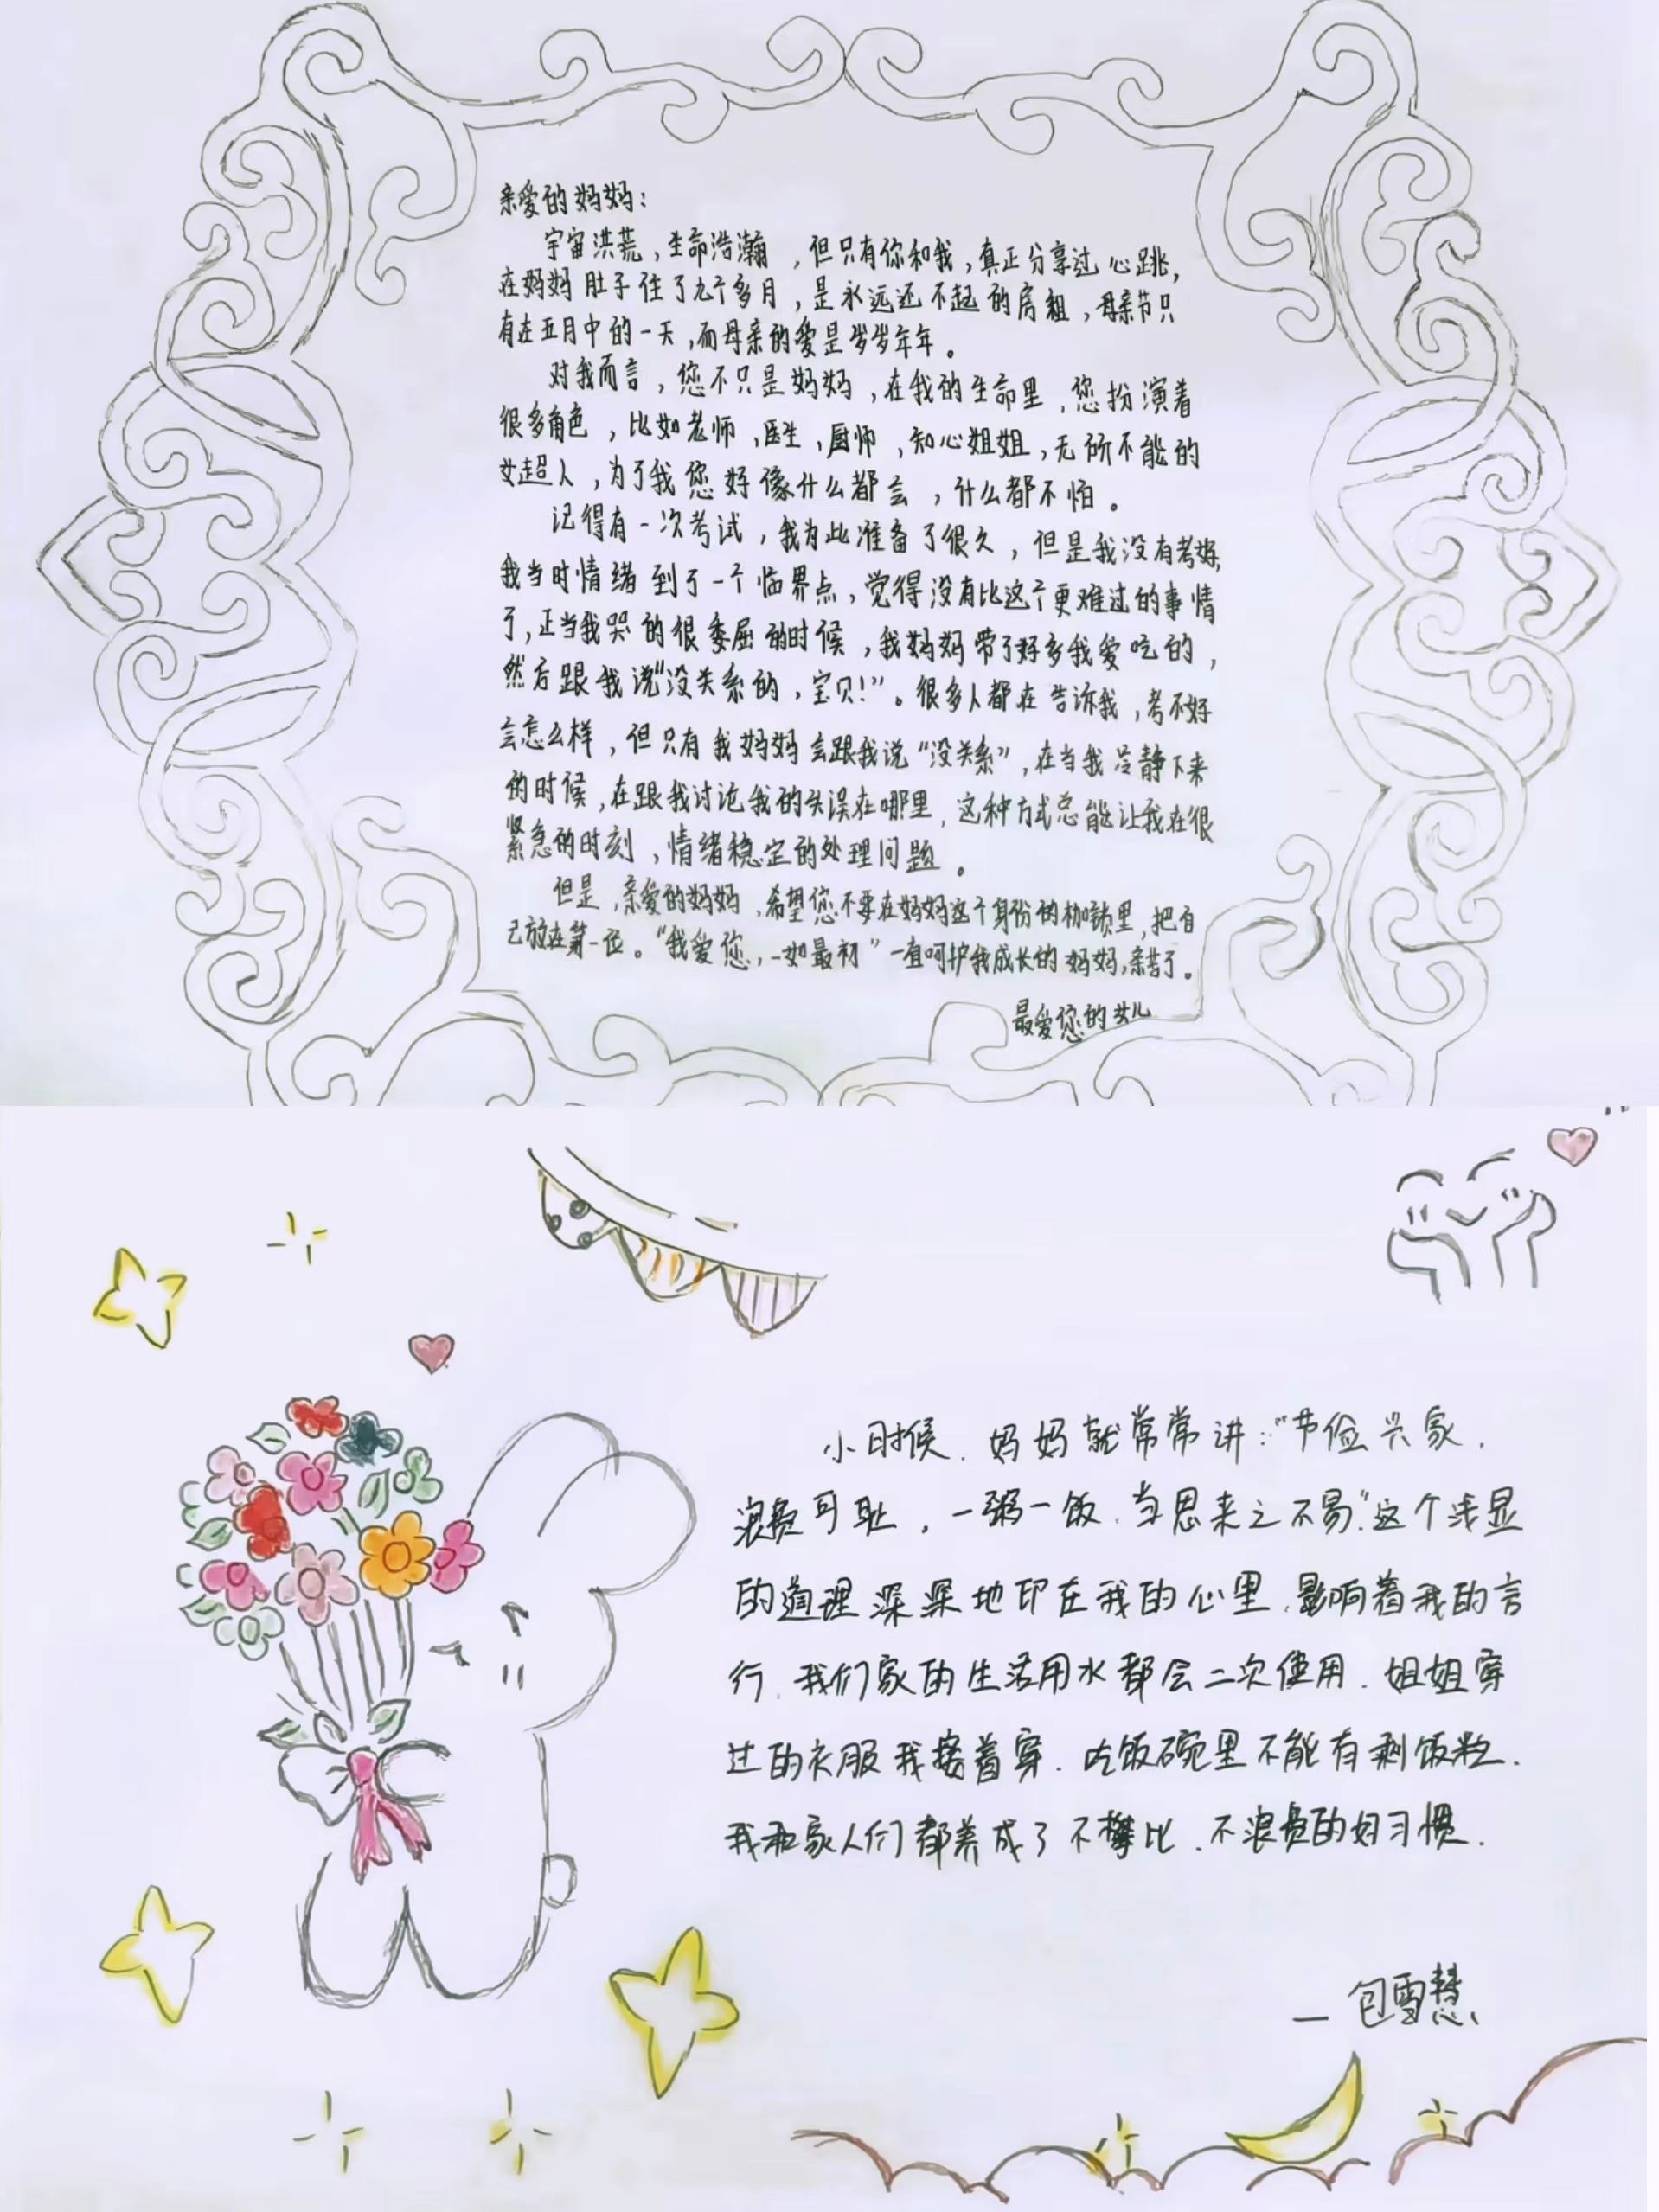 亲爱的妈妈：
宇宙洪荒，生命浩瀚，但只有你和我，真正分享过心跳，
在妈妈肚子住了九个多月，是永远还不起的房租，母亲节只
有在五月中的一天，而母亲的爱是岁岁年年。
对我而言，您不只是妈妈，在我的生命里，您扮演着
很多角色，比如老师、医生、厨师、知心姐姐，无所不能的
女超人，为了我您好像什么都会，什么都不怕。
记得有一次考试，我为此准备了很久，但是我没有考好，
我当时情绪到了一个临界点，觉得没有比这个更难过的事情
了，正当我哭的很委屈的时候，我妈妈带了好多我爱吃的，
然后跟我说“没关系的，宝贝！”。很多人都在告诉我，考不好
会怎么样，但只有我妈妈会跟我说“没关系”，在当我冷静下来
的时候，在跟我讨论我的失误在哪里，这种方式总能让我在很
紧急的时刻，情绪稳定的处理问题。
但是，亲爱的妈妈，希望您不要在妈妈这个身份的枷锁里，把自
己放在第一位。“我爱您，一如最初”一直呵护我成长的妈妈，亲苦了。
最爱您的女儿
小时候，妈妈就常常讲：“节俭兴家，
浪费可耻，一粥一饭，当思来之不易。”这个浅显
的道理深深地印在我的心里，影响着我的言
行，我们家的生活用水都会二次使用，姐姐穿
过的衣服我接着穿，吃饭碗里不能有剩饭粒，
我和家人们都养成了不攀比，不浪费的好习惯。
—包雪慧